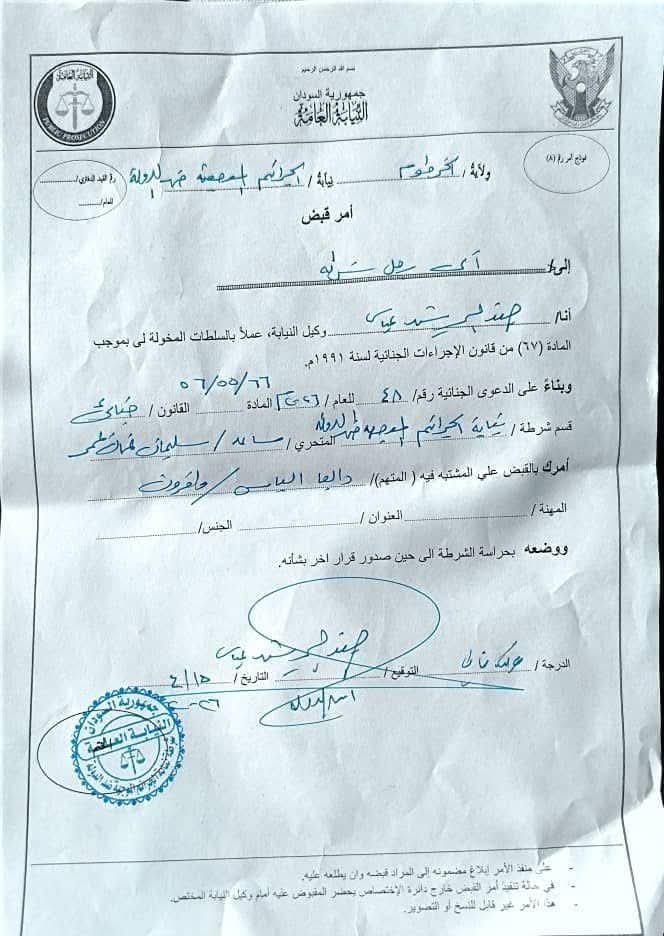 بسم الله الرحمن الرحيم
جمهورية السودان
النيابة العامة
النيابة العامة
PUBLIC PROSECUTION
نموذج أمر رقم (٨)
ولاية / الخرطوم نيابة / الجرائم الموجهة ضد الدولة
رقم القيد الدفتري/
للعام/
أمر قبض
إلى/ أي رجل شرطة
أنا/ وكيل النيابة، عملاً بالسلطات المخولة لى بموجب
المادة (٦٧) من قانون الإجراءات الجنائية لسنة ١٩٩١م.
وبناءً على الدعوى الجنائية رقم/ ٤٨ للعام / المادة القانون / جنائي
قسم شرطة / نيابة الجرائم الموجهة ضد الدولة المتحري / مساعد / سليمان
أمرك بالقبض علي المشتبه فيه ( المتهم)/ داليا الياس / وآخرون
المهنة / العنوان / الجنس/
ووضعه بحراسة الشرطة الى حين صدور قرار اخر بشأنه.
الدرجة / التوقيع / التاريخ / ٤/١٥
جمهورية السودان
النيابة العامة
- على منفذ الأمر إبلاغ مضمونه إلى المراد قبضه وان يطلعه عليه.
- في حالة تنفيذ أمر القبض خارج دائرة الإختصاص يحضر المقبوض عليه أمام وكيل النيابة المختص.
- هذا الأمر غير قابل للنسخ أو التصوير.